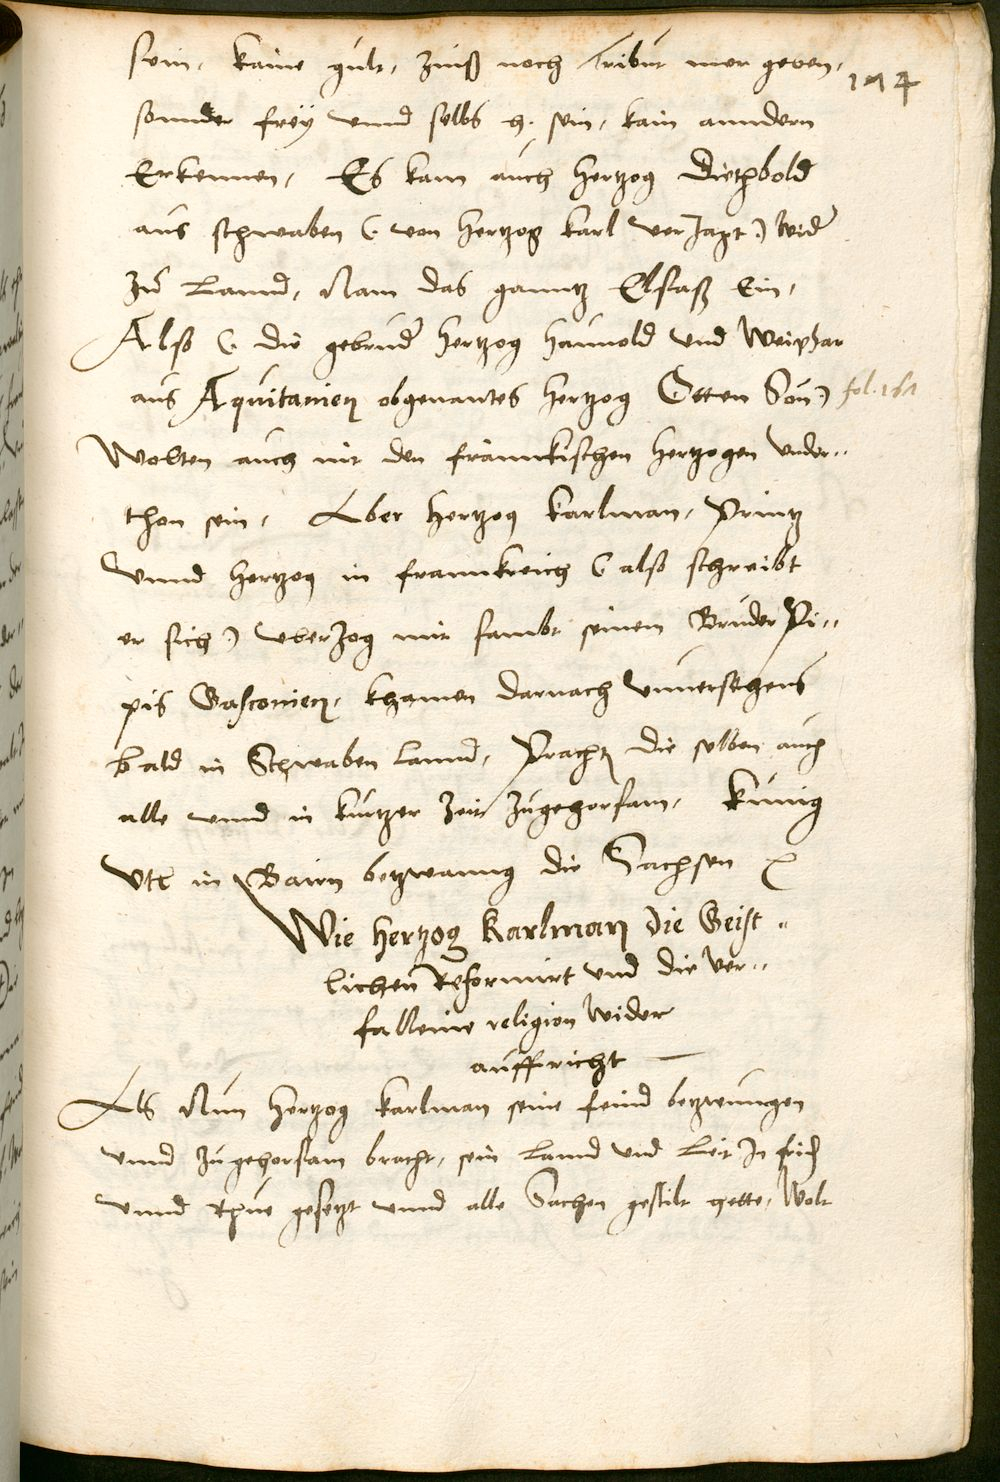 sein, kaine gült, Zinß noch Tribut mer geben,
174
sonnder freÿ vnnd selbs h. sein, kain anndern
Erkennen, Es kam auch Hertzog Diethbold
aus schwaben (: von Hertzog karl verJagt:) wider
Zu Lannd, Nam das ganntz Elsaß Ein,
Also (: die gebruder Hertzog Haunold vnd Weiphar
aus Aquitanien obgenantes Hertzog Otten Sön:)
fol. 161
Wolten auch nit den frännkischen Hertzogen vnder„
thon sein, Aber Hertzog Karlman, Printz
vnnd Hertzog in frannkreich (: also schreibt
er sich:) vberZog mit sambt seinem Bruder Pi„
pis Gasconien, khamen darnach vnnersehens
bald in Schwaben lannd, Pracht die selben auch
alle vnnd in kurtzer Zeit Zugehorsam, künig
Vtl in Bairn betzwanng die Sachsen
Wie Hertzog Karlman die Geist„
lichen Reformirt vnd die ver„
fallenne religion wider
auffricht
Als Nun Hertzog Karlman seine feind betzwungen
vnnd Zugehorsam bracht, sein Lannd vnd Leit In frid
vnnd Rhue gesetzt vnnd alle Sachen gestilt hette, Wolt